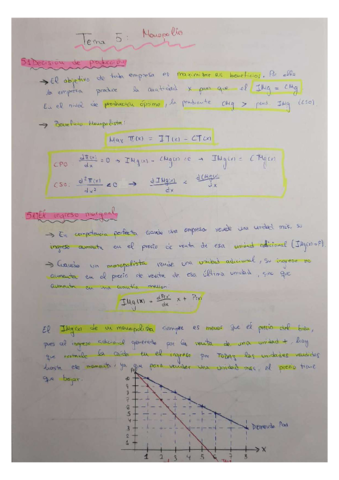 Tema 5: Monopolio
Decisión de producción
→ El objetivo de toda empresa es maximizar el beneficio. El
la empresa produce la cantidad x para que el IMg = CMg
En el nivel de producción óptimo, la pendiente CMg > pend IMg (CSO)
→ Beneficio Monopolista:
max π(x) = IT(x) - CT(x)
CPO: dπ(x)/dx = 0 → IMg(x) - CMg(x) = 0 → IMg(x) = CMg(x)
CSO: d²π(x)/dx² ≤ 0 → dIMg(x)/dx ≤ dCMg(x)/dx
→ En competencia perfecta cuando una empresa vende una unidad más, su
ingreso aumenta en el precio de venta de esa unidad adicional (IMg(x)=P)
→ Cuando un monopolista vende una unidad adicional, su ingreso no
aumenta en el precio de venta de esa última unidad, sino que
aumenta en una cuantía menor
IMg(x) = x + P(x)
El IMg(x) de un monopolista siempre es menor que el precio del bien,
pues al ingreso adicional generado por la venta de una unidad +, hay
que la caída en el ingreso por todas las unidades vendidas
hasta ese momento, ya que para vender una unidad más, el precio tiene
que bajar
Demanda
1 2 3 4 5 6 7 8
X